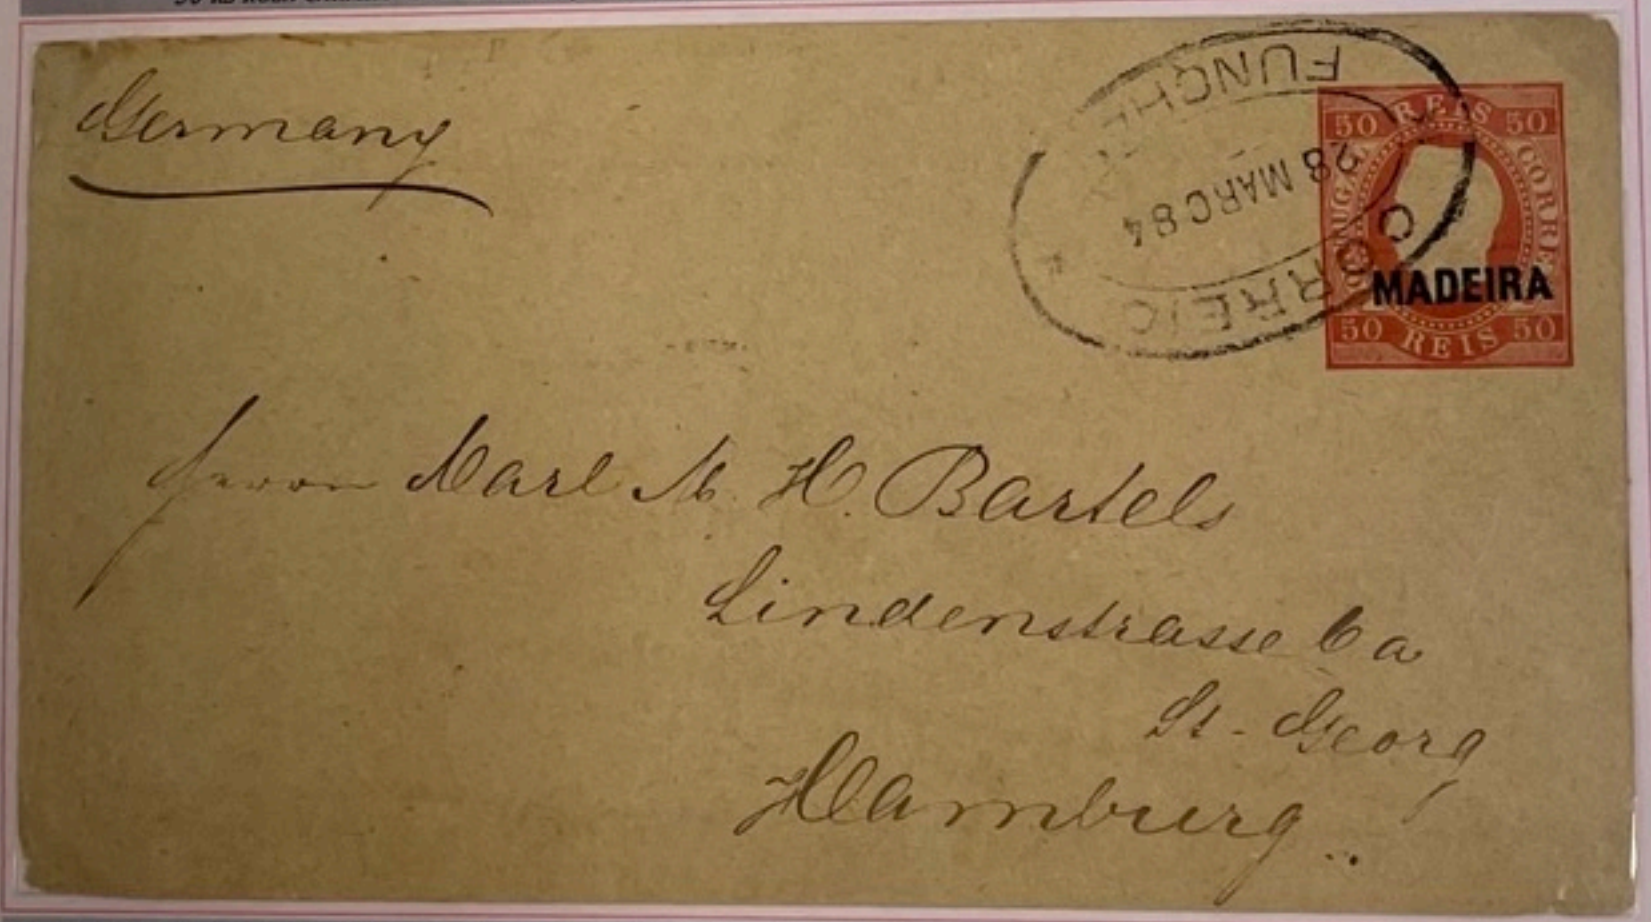 Germany
FUNCHAL
28 MARC 84
CORREIO
50 REIS 50
PORTUGAL
CORREIO
MADEIRA
50 REIS 50
Herrn Carl M. H. Bartels
Lindenstrasse 6a
St. Georg
Hamburg